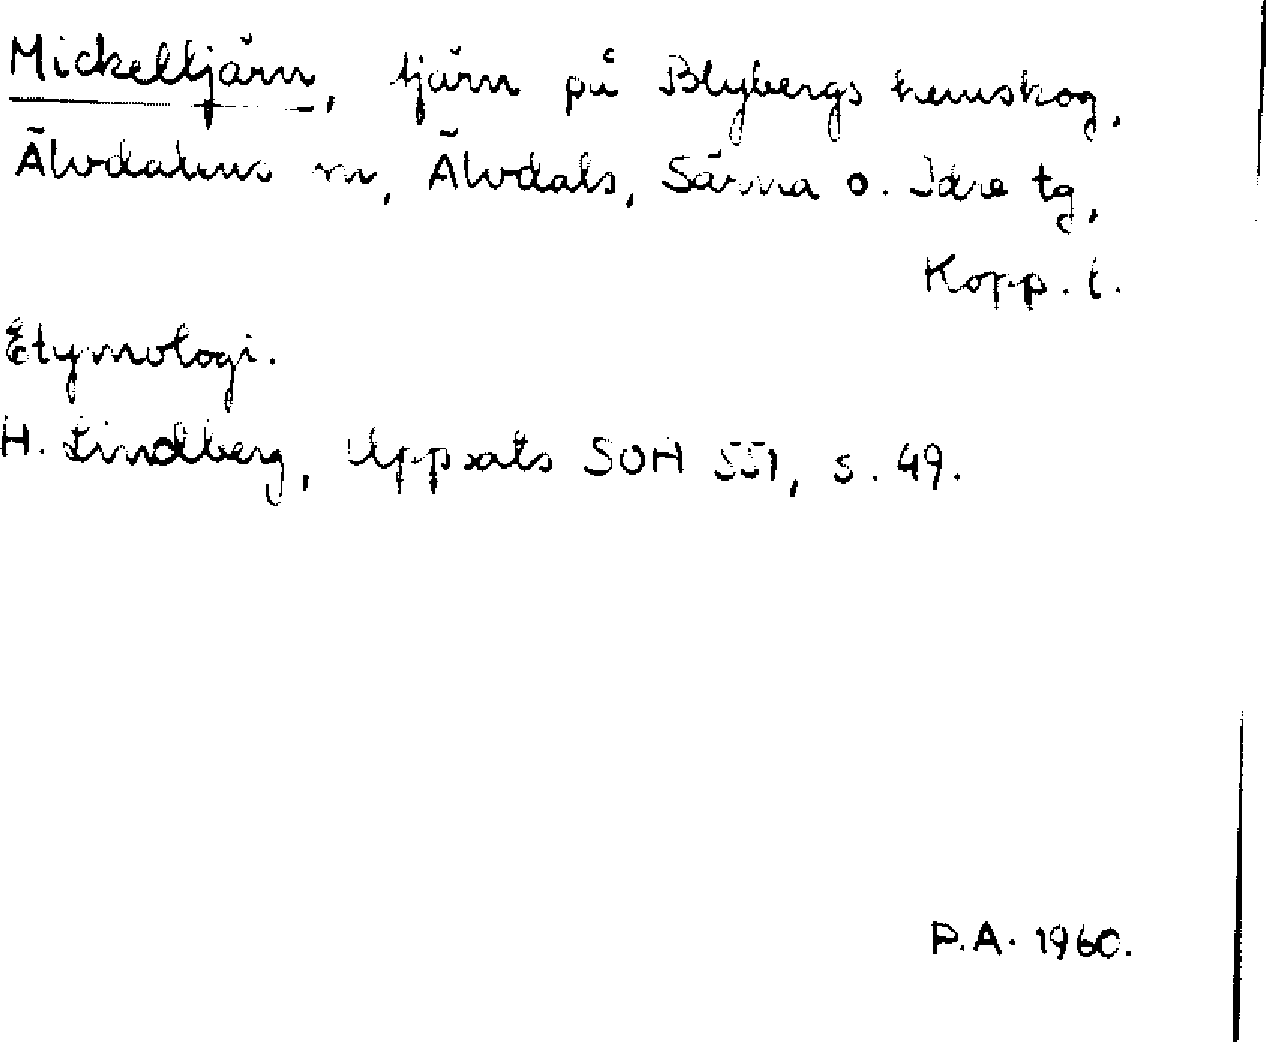 Mickeltjärn, tjärn på Blybergs hemskog,
Älvdalens sn, Älvdals, Särna o. Idre tg,
Kopp. l.
Etymologi.
H. Lindberg, Uppsats SOH 551, s. 49.
P.A. 1960.